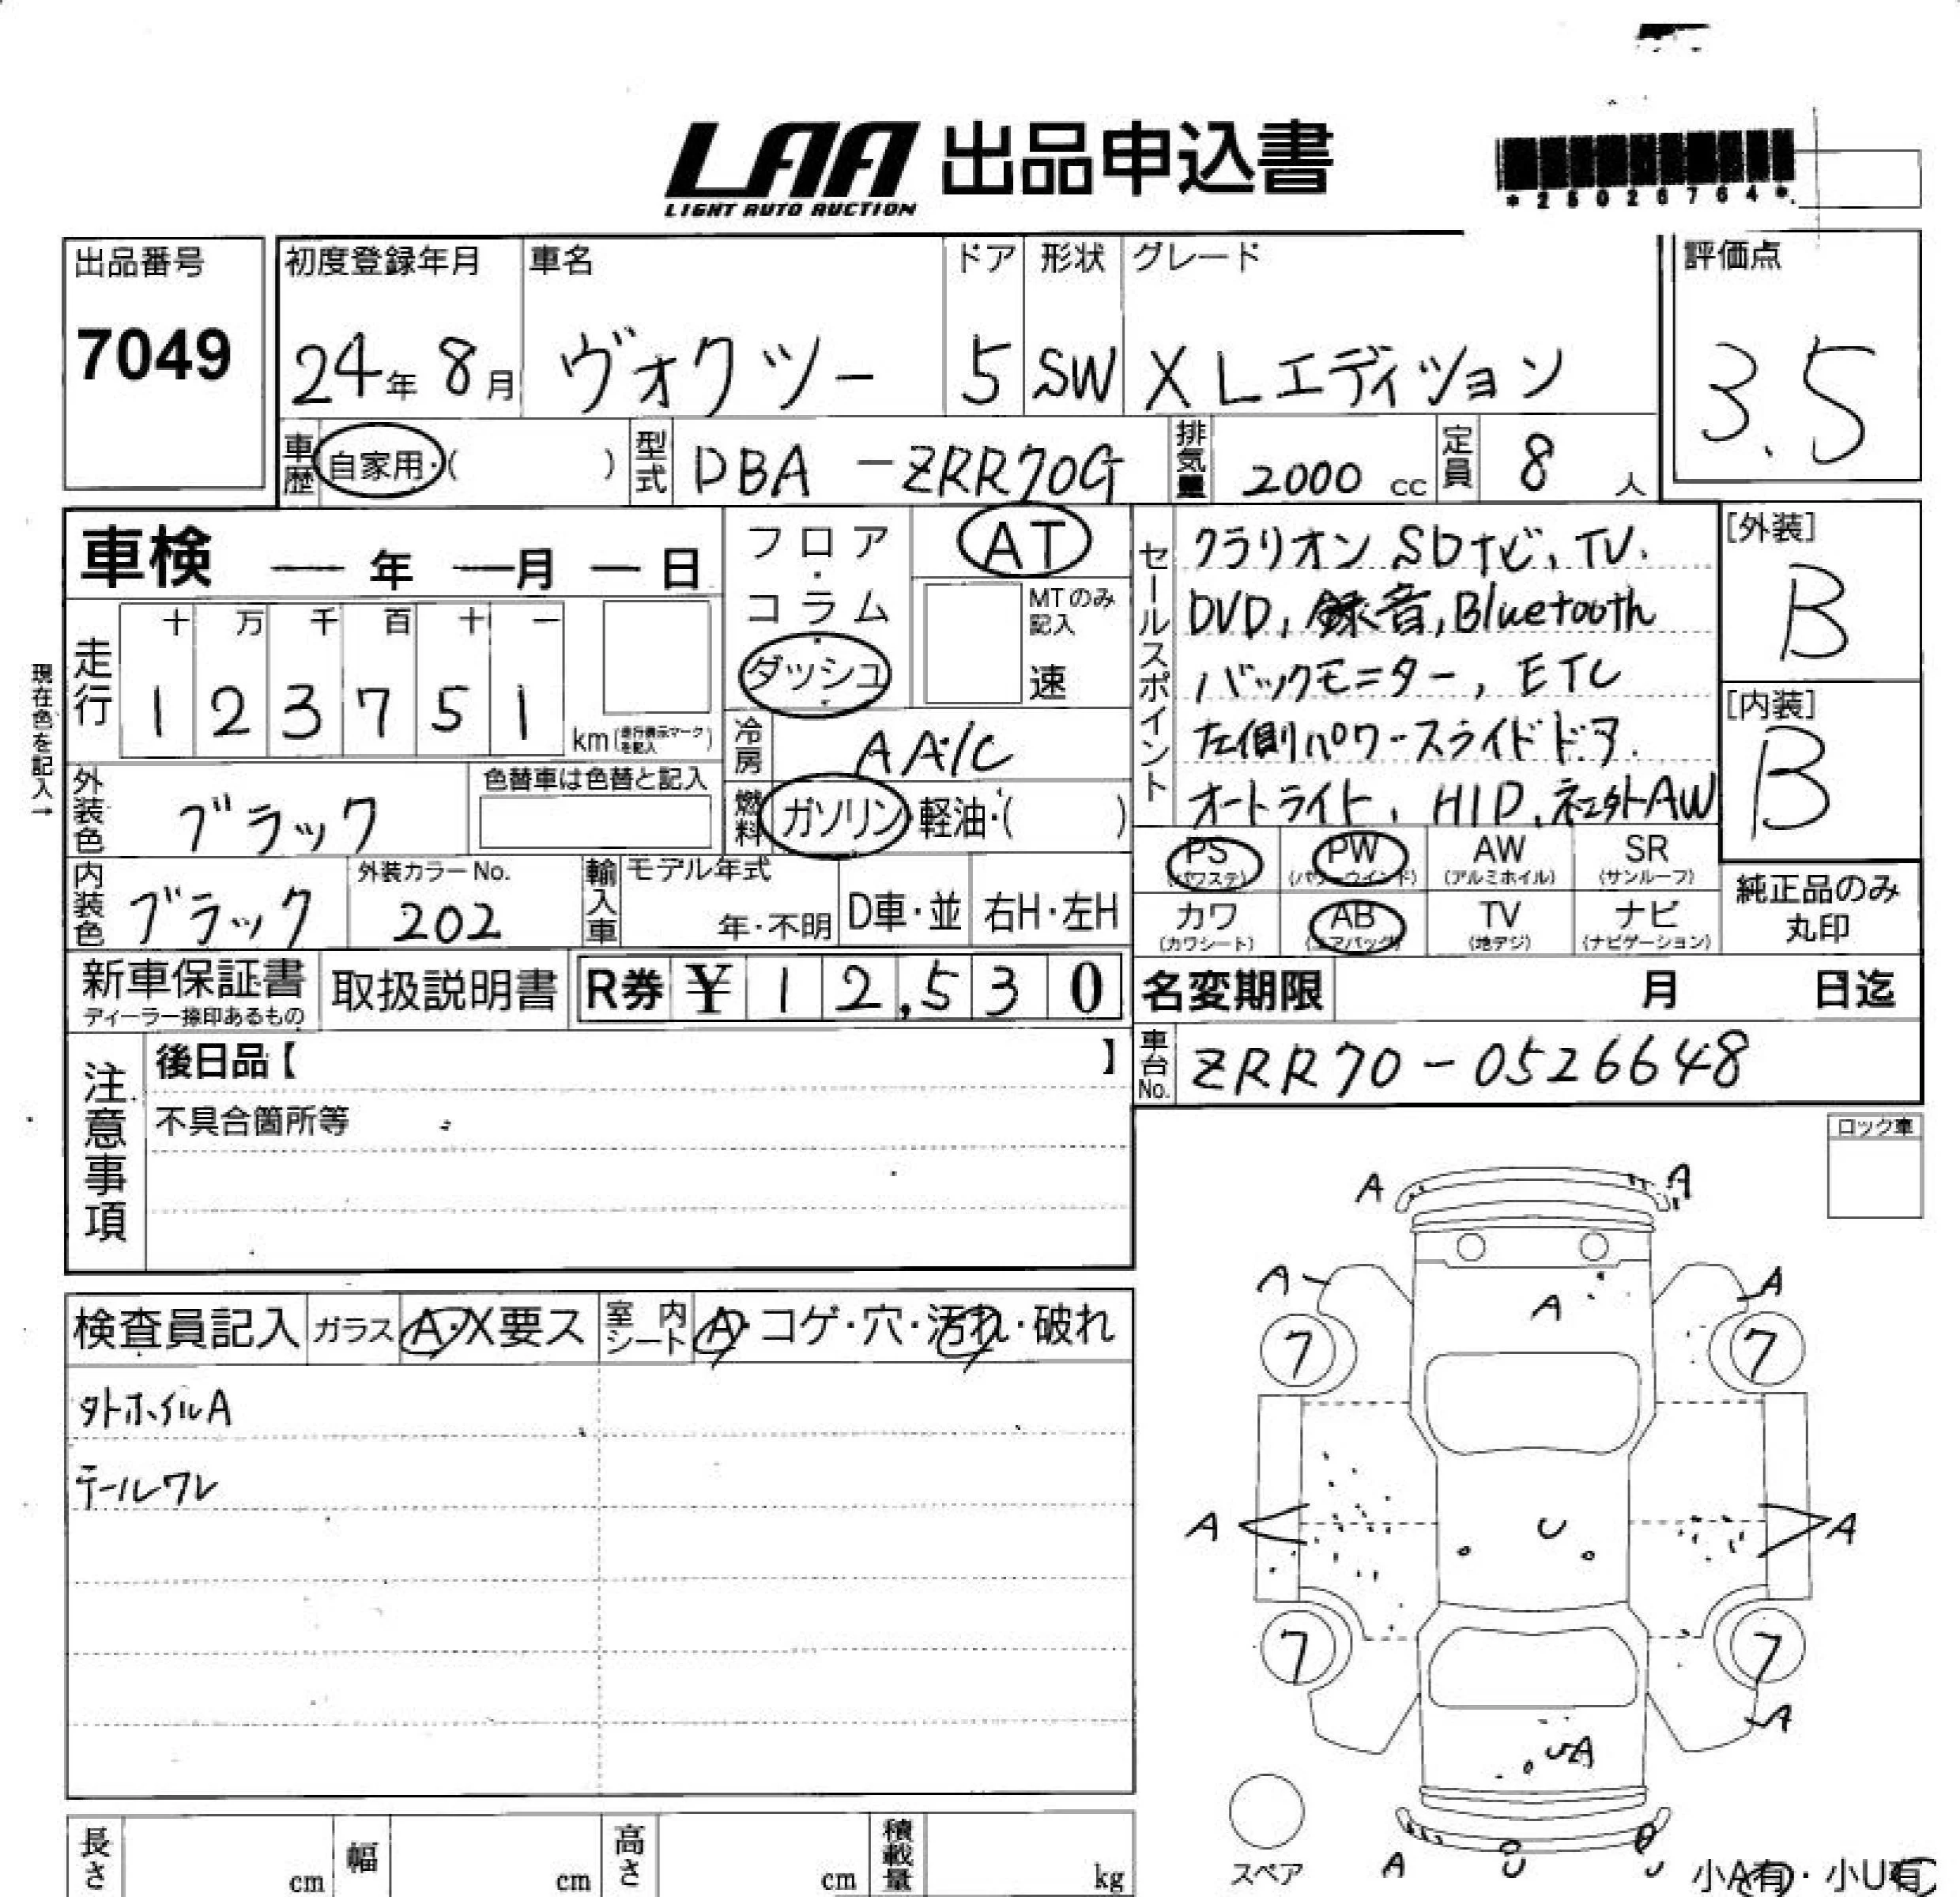 LAA 出品申込書
LIGHT AUTO AUCTION
*25026764*
出品番号 初度登録年月 車名 ドア 形状 グレード 評価点
7049 24年 8月 ヴォクツー 5 SW X Lエディション 3.5
車歴 自家用・( ) 型式 DBA -ZRR70G 排気量 2000 cc 定員 8 人
車検 ー年 ー月 ー日
フロア・コラム
ダッシュ
AT
MTのみ記入
速
走行
十 万 千 百 十 一
1 2 3 7 5 1 km(走行表示マークを記入)
現在色を記入→
冷房 AA/C
外装色 ブラック
色替車は色替と記入
燃料 ガソリン・軽油・( )
セールスポイント
クラリオン SDナビ, TV.
DVD, 録音, Bluetooth
バックモニター, ETC
左側パワースライドドア.
オートライト, HID, 社外AW
[外装]
B
[内装]
B
内装色 ブラック
外装カラーNo.
202
輸入車 モデル年式
年・不明 D車・並 右H・左H
PS (パワステ) PW (パワーウインド) AW (アルミホイル) SR (サンルーフ)
カワ (カワシート) AB (エアバッグ) TV (地デジ) ナビ (ナビゲーション)
純正品のみ
丸印
新車保証書 取扱説明書 R券 ¥ 1 2,5 3 0
ディーラー捺印あるもの
名変期限 月 日迄
車台No. ZRR70-0526648
注意事項
後日品【 】
不具合箇所等
ロック車
検査員記入 ガラス A・X要ス 室内シート A・コゲ・穴・汚れ・破れ
タトホイルA
テールワレ
A A
A A
A
7 7
A U A
7 7
A
UA
スペア
A U U
小A有・小U有
長さ cm 幅 cm 高さ cm 積載量 kg